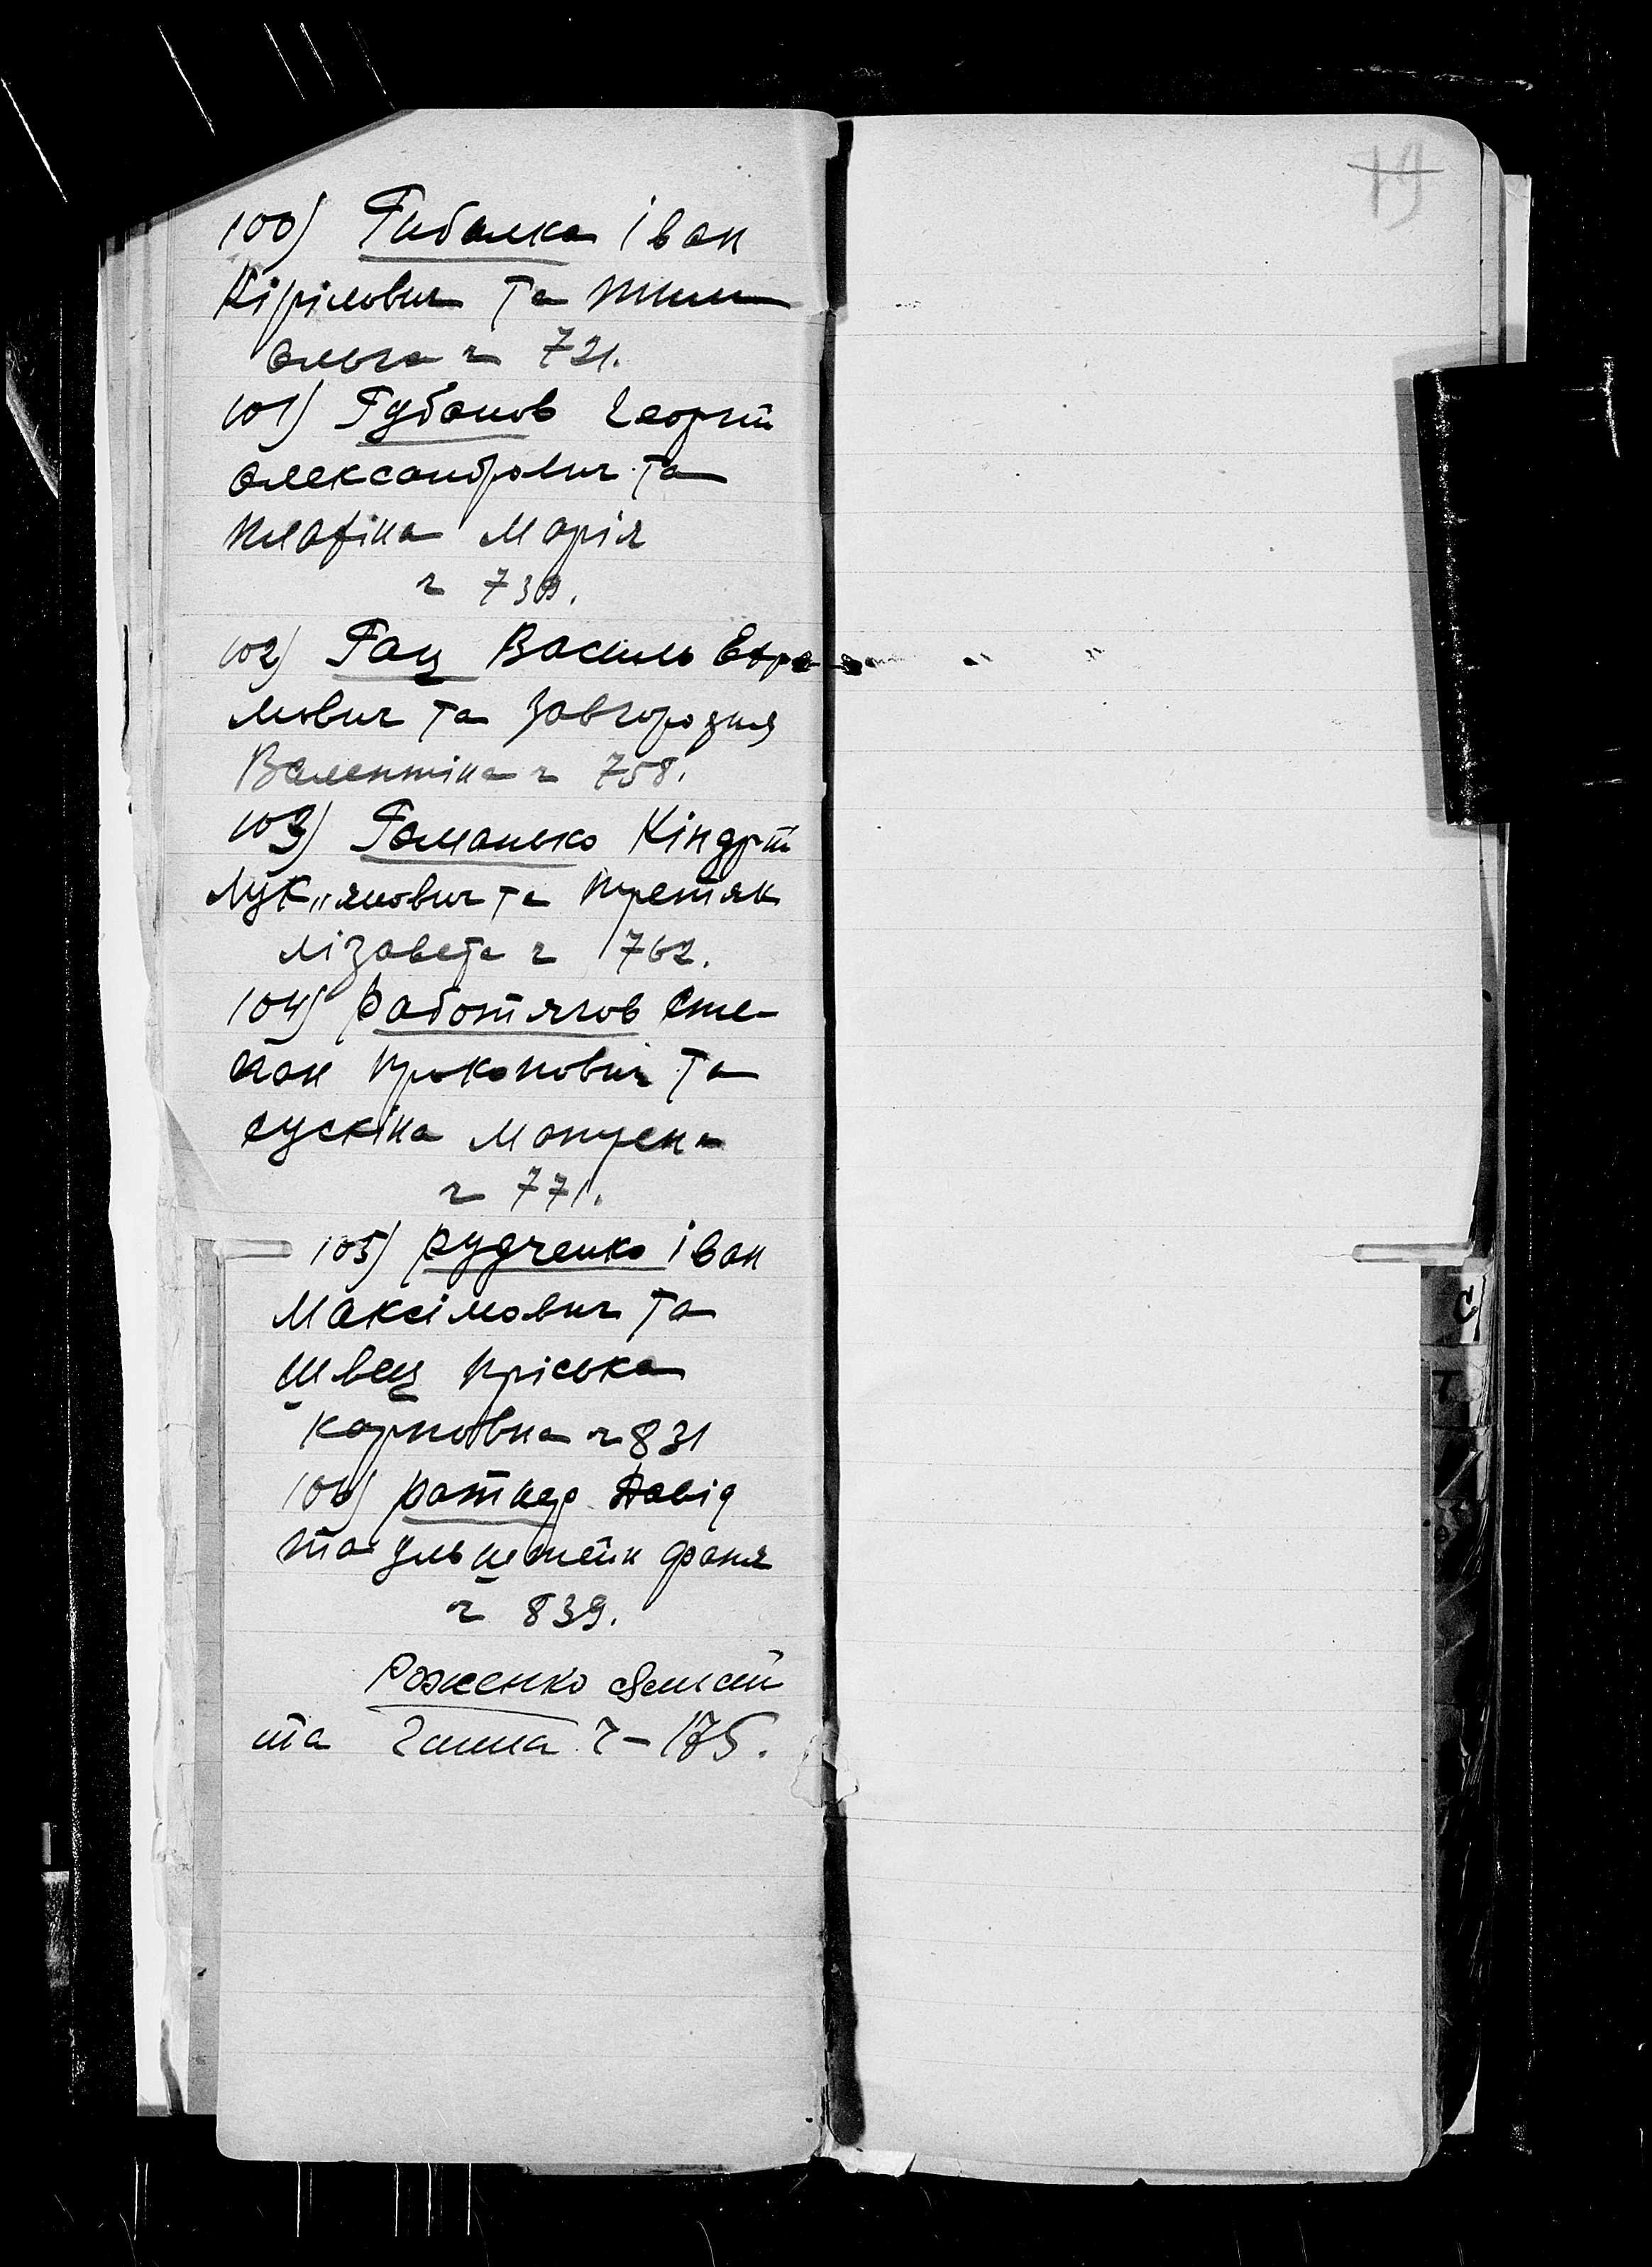 100) Рибалка Іван
Кірілович та
Ольга ч 721.
101) Рубанов Георгій
Олександрович та
Платіна Марія
ч 739.
102) Рац Василь Евре-
мович та Завгородня
Валентіна ч 758.
103) Романько Кіндрат
Лук"янович та Третяк
Лізавета ч 762.
104) Работягов Сте-
пан Прокопович та
Сускіна Мотрена
ч 771.
105) Рудченко Іван
Максімович та
Швец Пріська
Карповна ч 831
106) Ратнер Давід
та Фаня
ч 839.
Роженко
та Ганна ч-175.
19
С
Т